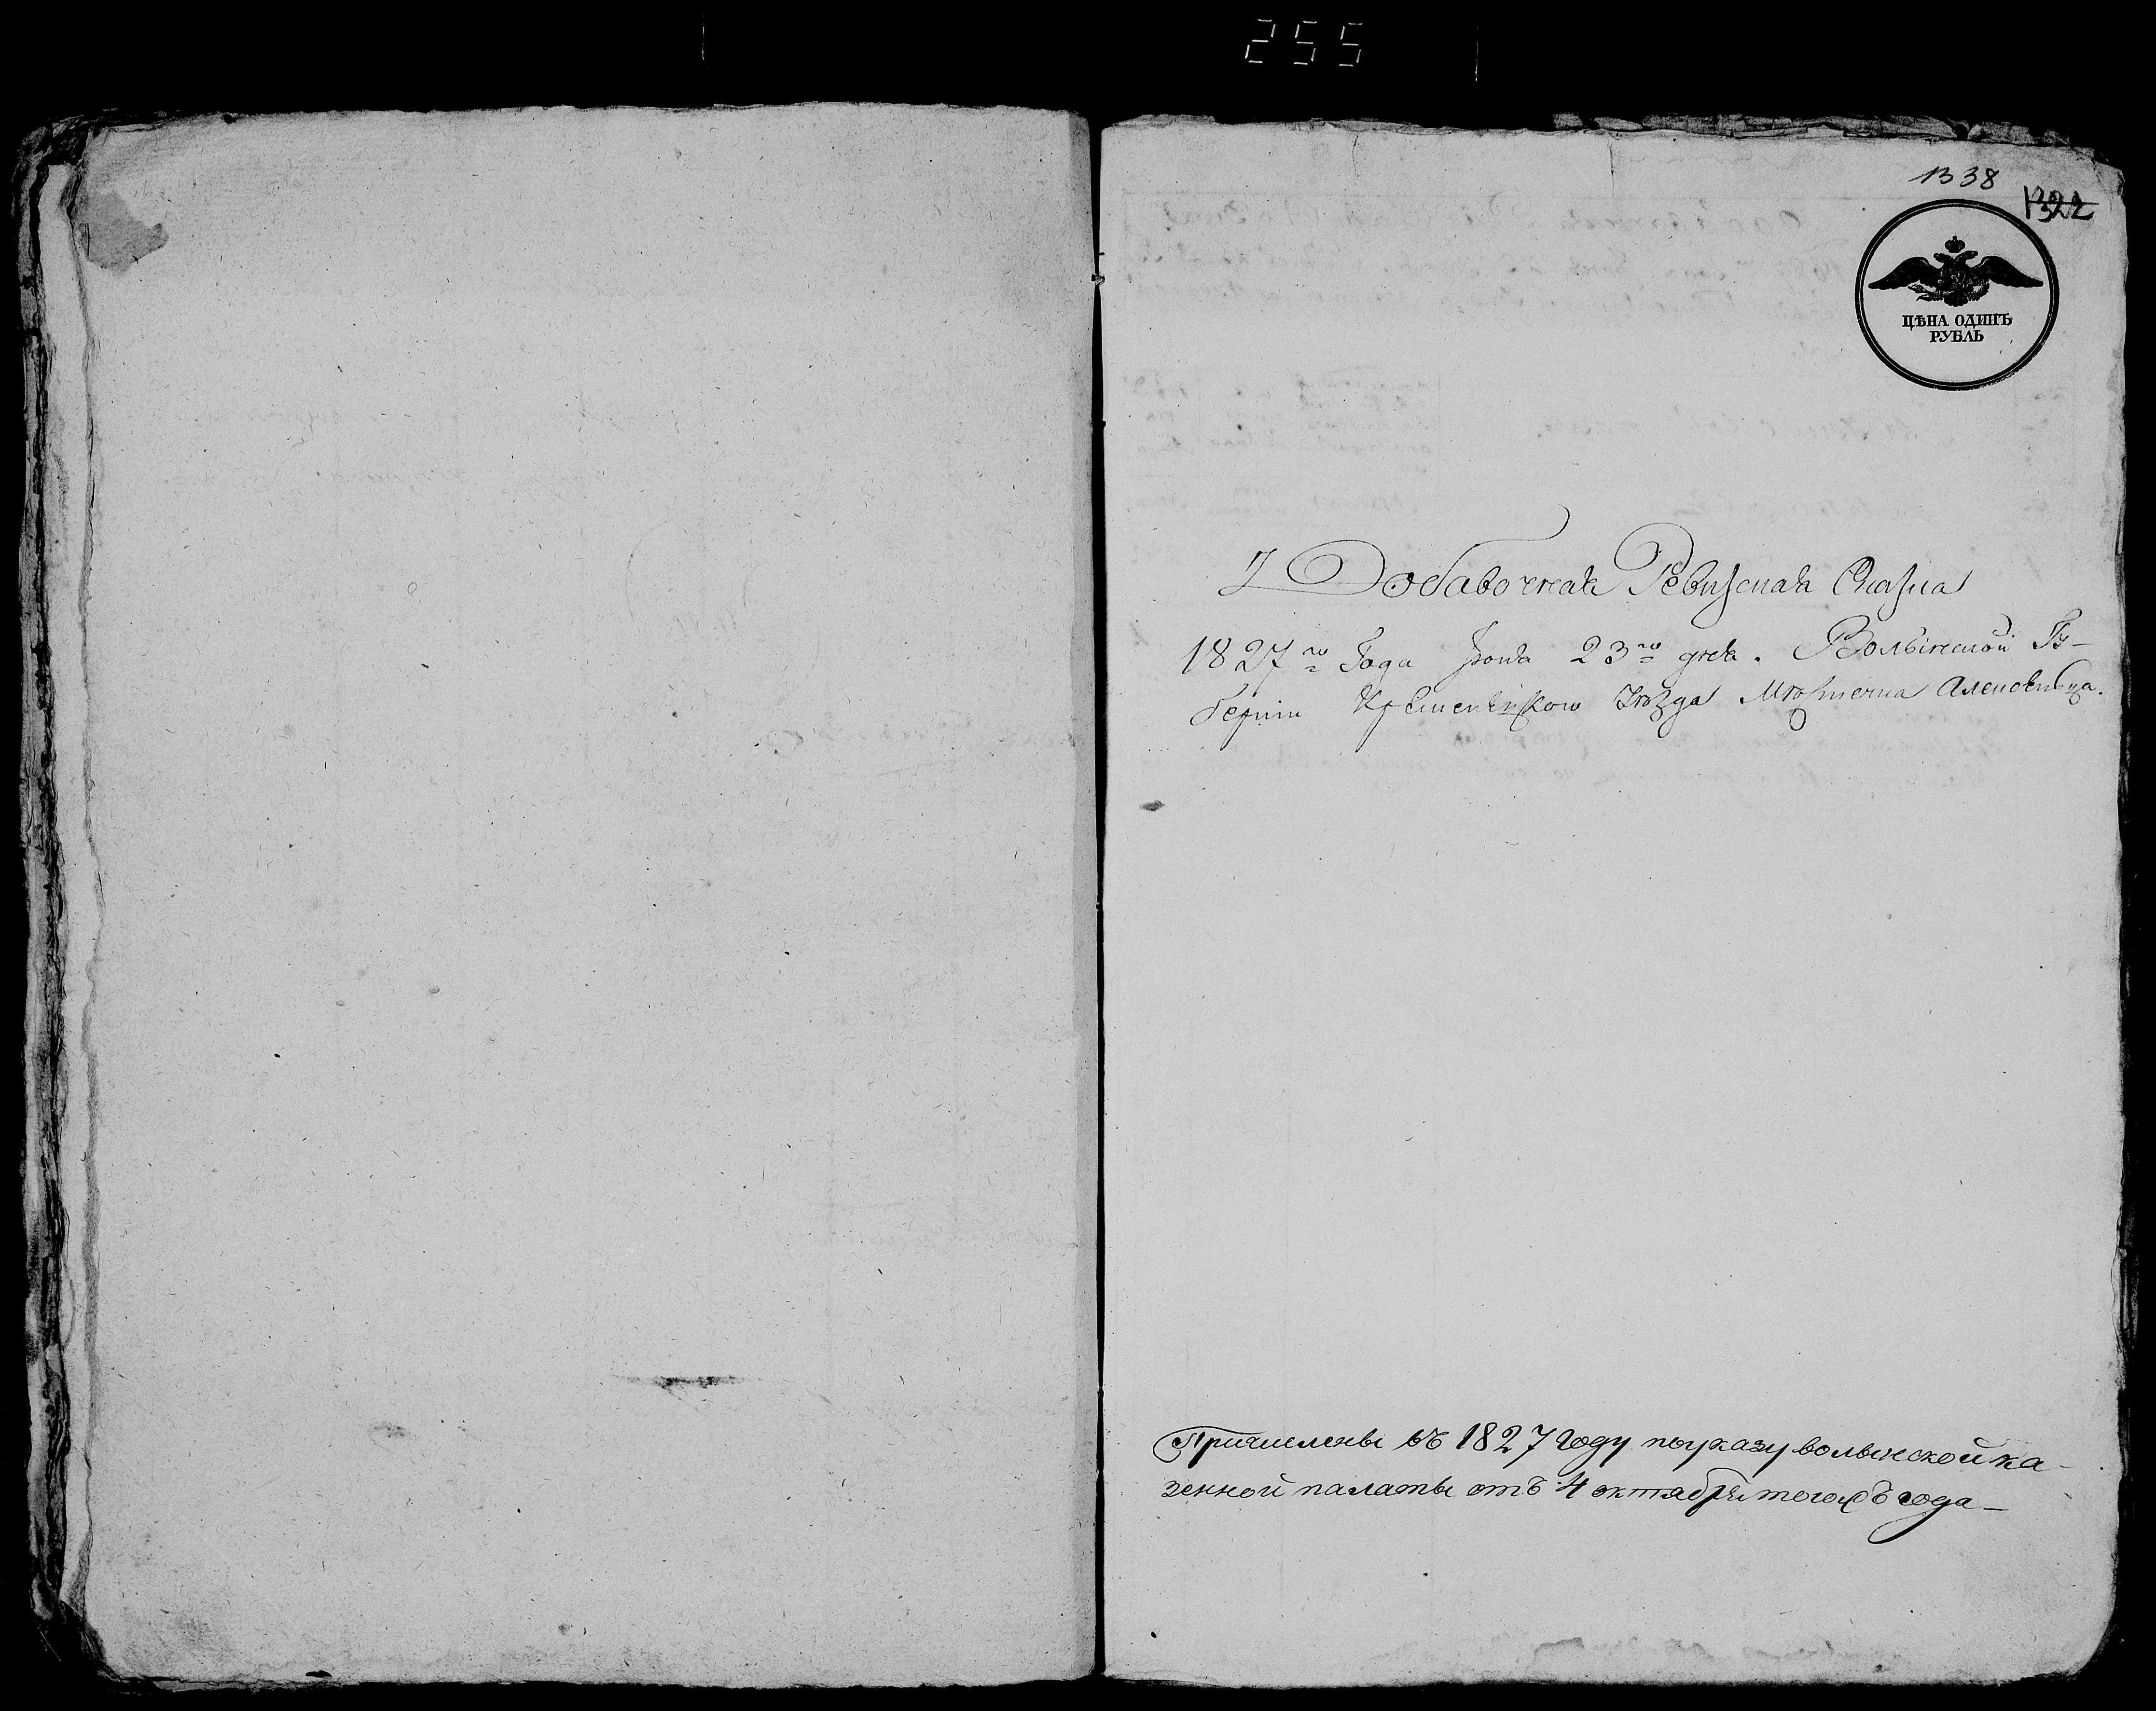 255
1338
1322
ЦѢНА ОДИНЪ
РУБЛЬ
Добавочная Ревизская Сказка
1827го Года Іюня 23го дня. Волынской Гу-
берніи Кременецкого Уѣзда Мѣстечка Алексинца.
Причислены въ 1827 году по указу волынской ка-
зенной палаты отъ 4 октября того жъ года